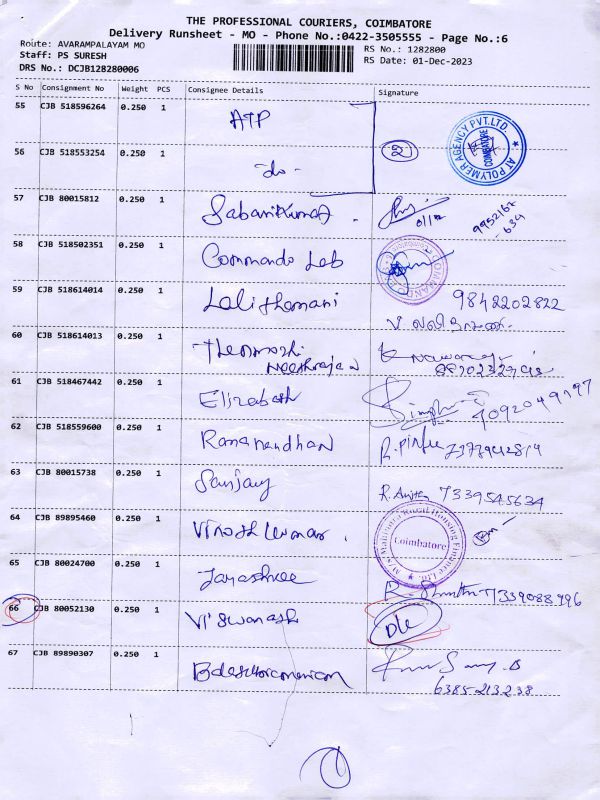 THE PROFESSIONAL COURIERS, COIMBATORE
Delivery Runsheet - MO - Phone No.:0422-3505555 - Page No.:6
Route: AVARAMPALAYAM MO
RS No.: 1282800
Staff: PS SURESH
RS Date: 01-Dec-2023
DRS No.: DCJB128280006
S No Consignment No Weight PCS Consignee Details Signature
55 CJB 518596264 0.250 1 ATP
AT POLYMER AGENCY PVT.LTD. COIMBATORE
56 CJB 518553254 0.250 1 -do- 2
57 CJB 80015812 0.250 1 Sabarikumar.
58 CJB 518502351 0.250 1 Commando Lab
59 CJB 518614014 0.250 1 Lalithamani 9842202822
60 CJB 518614013 0.250 1
61 CJB 518467442 0.250 1 Elizabeth
62 CJB 518559600 0.250 1 Ramanandhan
63 CJB 80015738 0.250 1 Sanjay 7339545634
64 CJB 89895460 0.250 1 Vinoth kumar.
Housing Finance Ltd. Coimbatore
65 CJB 80024700 0.250 1 Jayashree
66 CJB 80052130 0.250 1 Viswanath DLC
67 CJB 89890307 0.250 1
6385213238